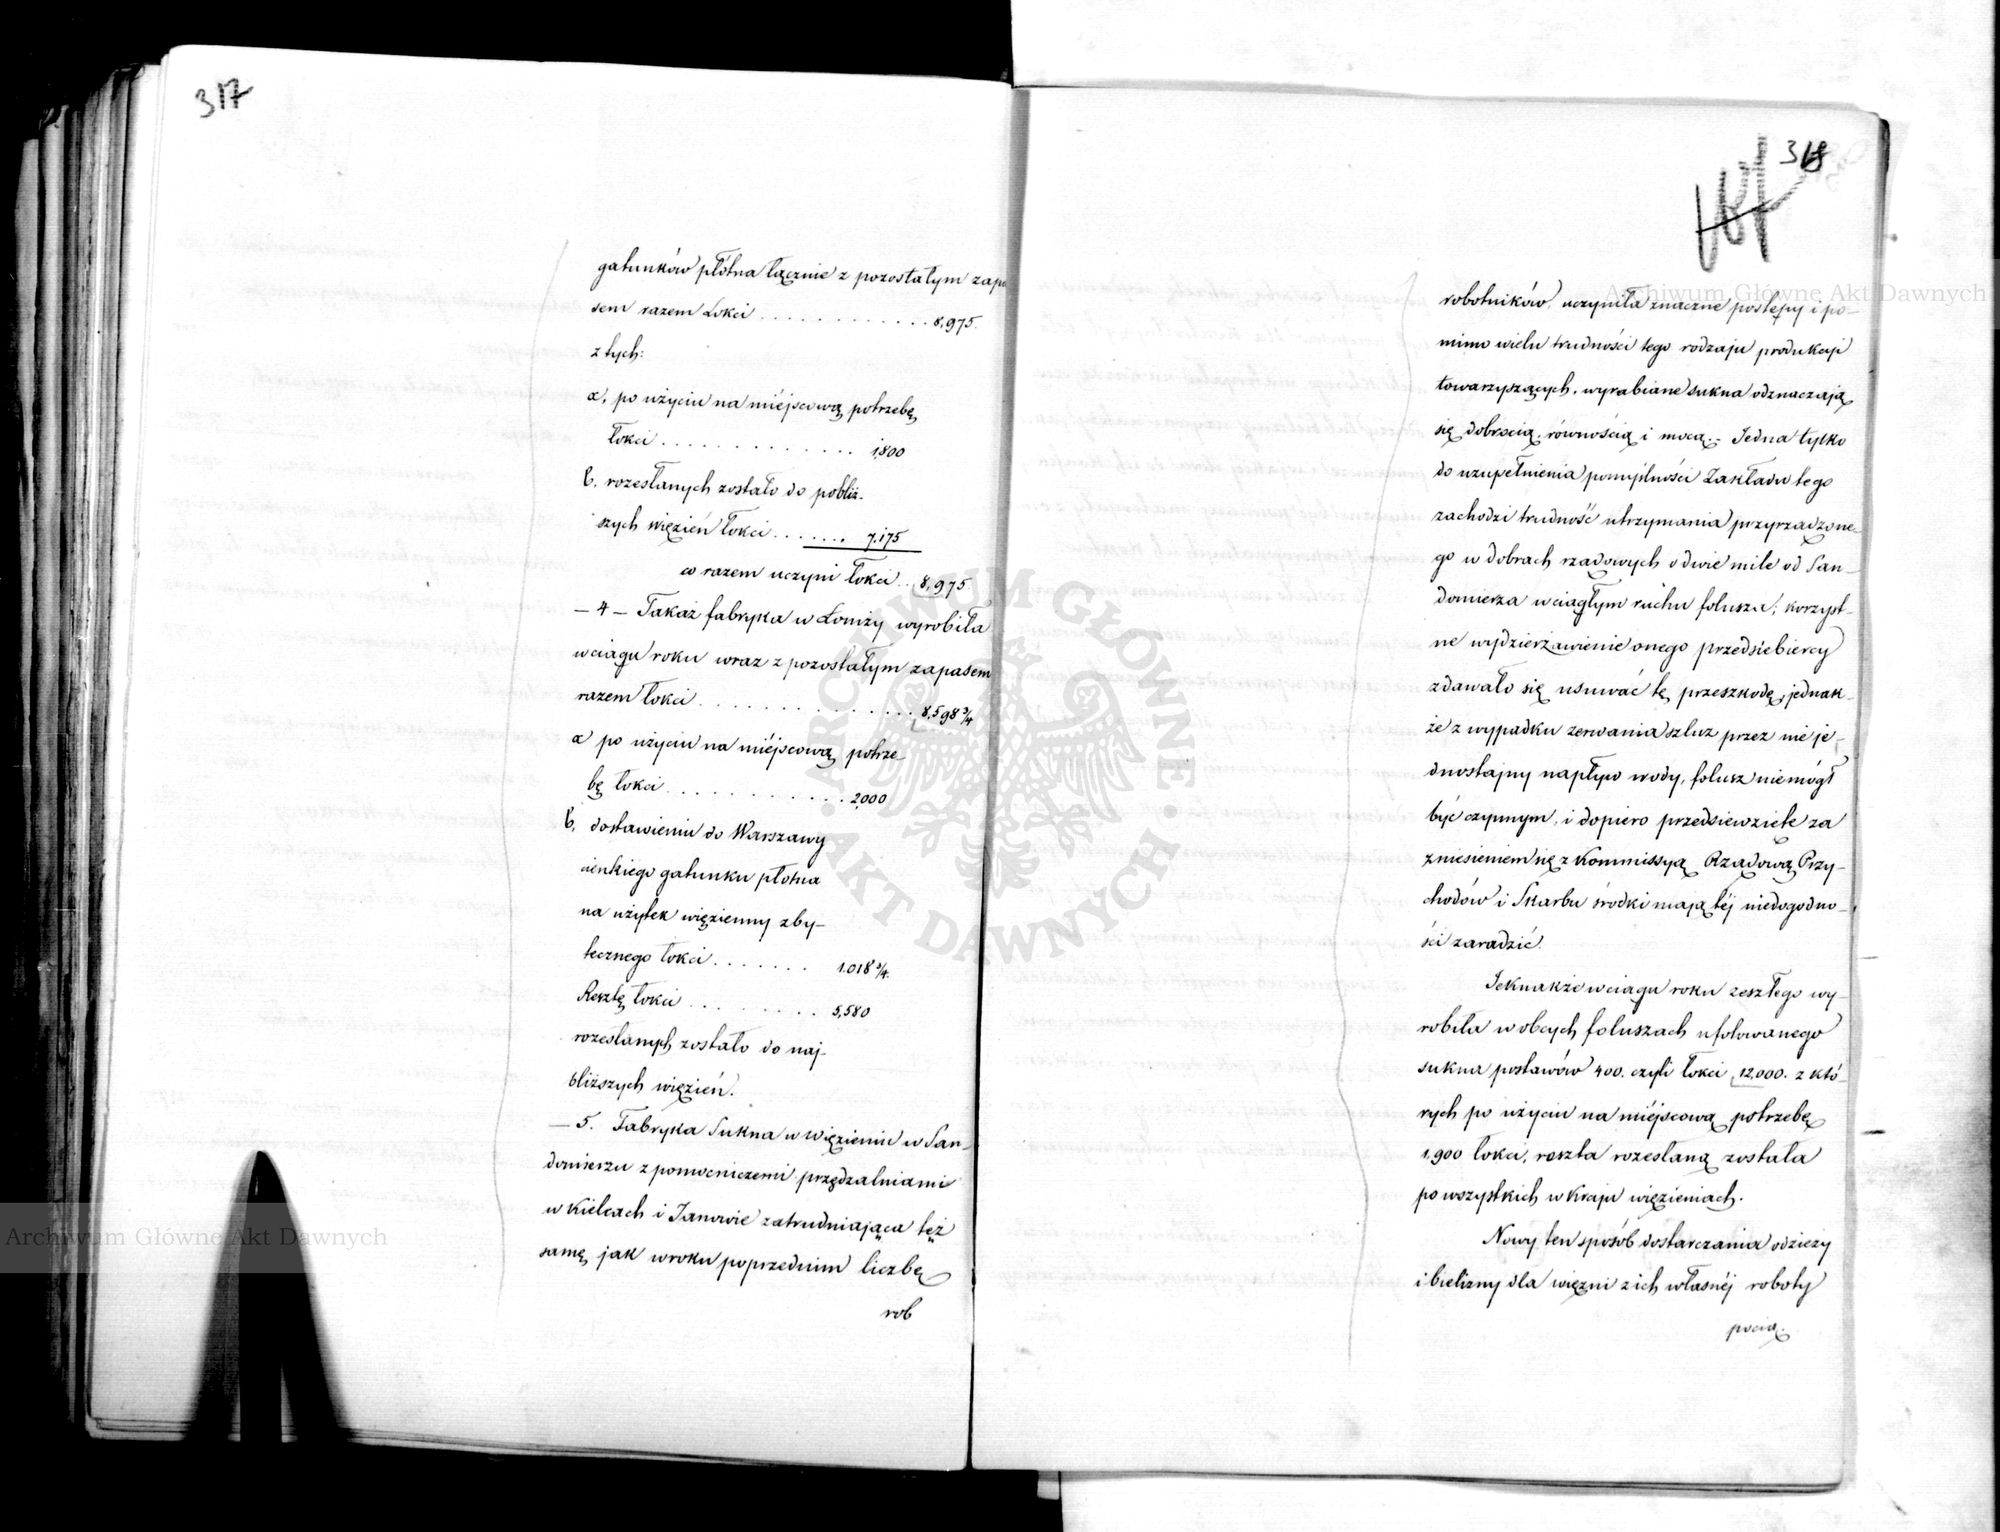 317
gatunków płótna łącznie z pozostałym zapa
sem razem Łokci . . . . . . . . . . . . 8,975.
z tych:
a, po użyciu na miéjscową potrzebę
łokci . . . . . . . . . . . . 1,800
b. rozesłanych zostało do pobliż-
szych więzień łokci . . . . . . 7,175
co razem uczyni łokci . . 8,975.
— 4 — Takaż fabryka w Łomży wyrobiła
w ciągu roku wraz z pozostałym zapasem
razem łokci . . . . . . . . . . . . . . 8,598 3/4
a po użyciu na miéjscową potrze-
bę łokci . . . . . . . . . . . . 2,000
b, dostawieniu do Warszawy
cienkiego gatunku płótna
na użytek więzienny zby-
tecznego łokci . . . . . . . 1.018 3/4.
Resztę łokci . . . . . . . . . 5,580
rozesłanych zostało do naj-
bliższych więzień.
— 5. Fabryka Sukna w więzieniu w San-
domierzu z pomocniczemi przędzalniami
w Kielcach i Janowie zatrudniająca też
samę, jak w roku poprzednim liczbę
rob
318
187
robotników, uczyniła znaczne postępy i po-
mimo wielu trudności tego rodzaju produkcji
towarzyszących, wyrabiane sukna odznaczają
się dobrocią, równością i mocą.. Jedna tylko
do uzupełnienia pomyślności Zakładu tego
zachodzi trudność utrzymania przyrządzone-
go w dobrach rządowych o dwie mile od San-
domierza w ciągłym ruchu folusza; korzyst-
ne wydzierżawienie onego przedsiebiercy
zdawało się usuwać tę przeszkodę, jednak-
że z wypadku zerwania szluz przez nie je-
dnostajny napływ wody, folusz niemógł
być czynnym, i dopiero przedsięwzięte za
zniesieniem się z Kommissyą Rządową Przy-
chodów i Skarbu środki mają téj niedogodno-
ści zaradzić.
Jeknakże w ciągu roku zeszłego wy-
robiła w obcych foluszach ufolowanego
sukna postawów 400. czyli łokci 12,000. z któ-
rych po użyciu na miéjscową potrzebę
1,900 łokci, reszta rozesłaną została
po wszystkich w Kraju więzieniach.
Nowy ten sposób dostarczania odzieży
i bielizny dla więzni z ich własnéj roboty
pocią.
Archiwum Główne Akt Dawnych
Archiwum Główne Akt Dawnych
ARCHIWUM GŁÓWNE · AKT DAWNYCH ·